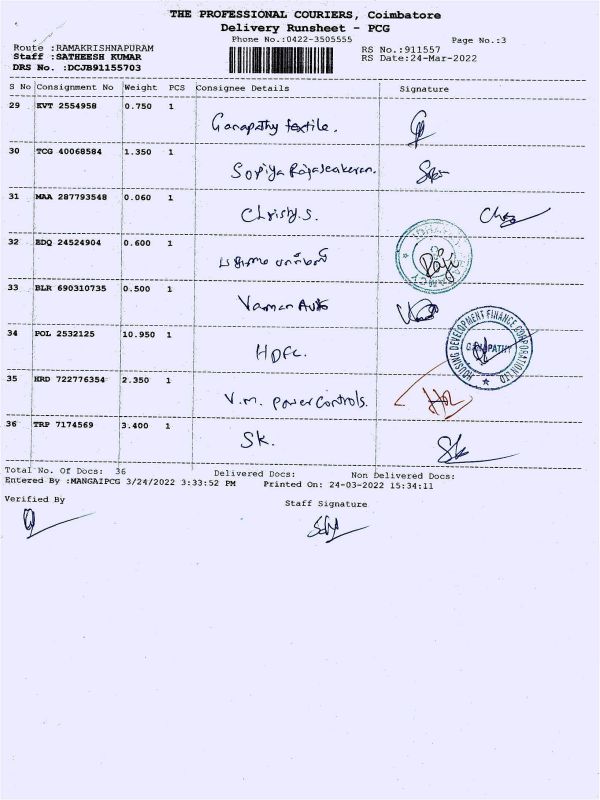 THE PROFESSIONAL COURIERS, Coimbatore
Delivery Runsheet - PCG
Phone No.:0422-3505555
Page No.:3
Route :RAMAKRISHNAPURAM
RS No.:911557
Staff :SATHEESH KUMAR
RS Date:24-Mar-2022
DRS No. :DCJB91155703
S No Consignment No Weight PCS Consignee Details Signature
29 KVT 2554958 0.750 1
Ganapathy textile.
30 TCG 40068584 1.350 1
Sopiya Rajasekaran.
31 MAA 287793548 0.060 1
Christy.S.
32 EDQ 24524904 0.600 1
Raji
33 BLR 690310735 0.500 1
Vaman Auto
34 POL 2532125 10.950 1
HDFC.
HOUSING DEVELOPMENT FINANCE CORPORATION LTD
GANAPATHY
35 HRD 722776354 2.350 1
V.M. Power Controls.
36 TRP 7174569 3.400 1
SK.
Sk
Total No. Of Docs: 36 Delivered Docs: Non Delivered Docs:
Entered By :MANGAIPCG 3/24/2022 3:33:52 PM Printed On: 24-03-2022 15:34:11
Verified By
Staff Signature